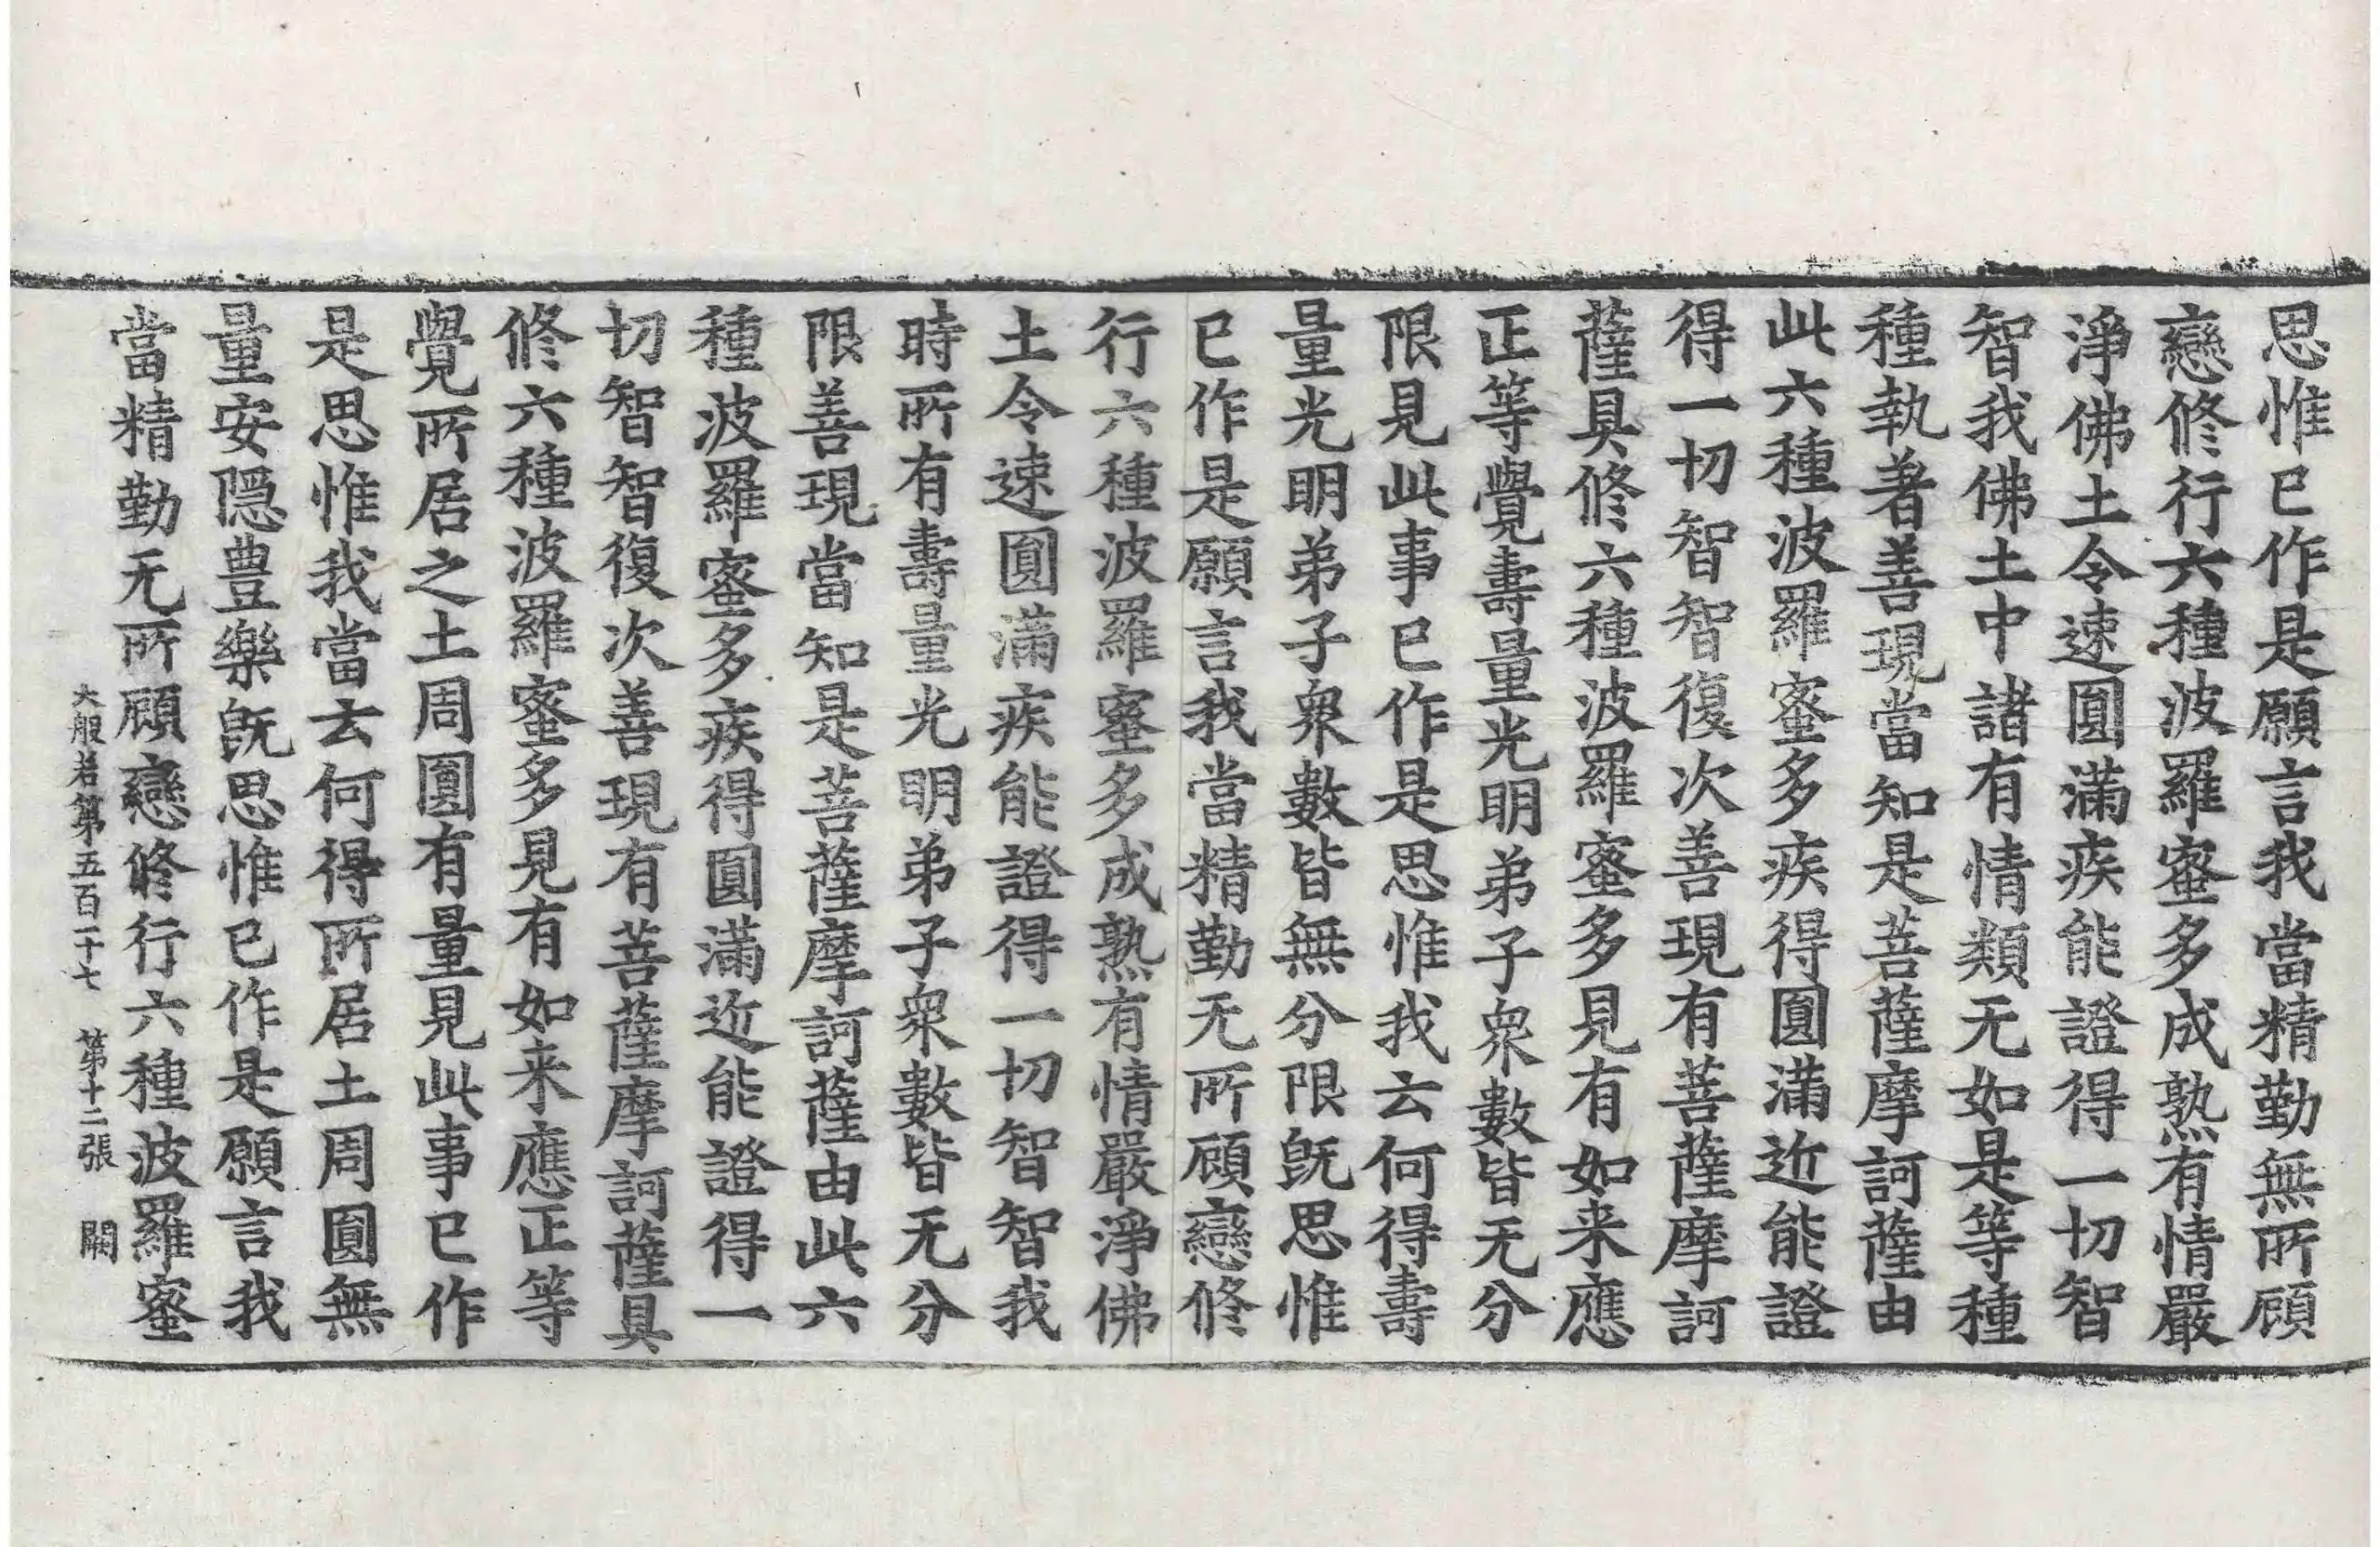 思惟已作是願言我當精勤無所顧
戀修行六種波羅蜜多成熟有情嚴
淨佛土令速圓滿疾能證得一切智
智我佛土中諸有情類无如是等種
種執著善現當知是菩薩摩訶薩由
此六種波羅蜜多疾得圓滿近能證
得一切智智復次善現有菩薩摩訶
薩具修六種波羅蜜多見有如来應
正等覺壽量光明弟子衆數皆无分
限見此事已作是思惟我云何得壽
量光明弟子衆數皆無分限旣思惟
已作是願言我當精勤无所顧戀修
行六種波羅蜜多成熟有情嚴淨佛
土令速圓滿疾能證得一切智智我
時所有壽量光明弟子衆數皆无分
限善現當知是菩薩摩訶薩由此六
種波羅蜜多疾得圓滿近能證得一
切智智復次善現有菩薩摩訶薩具
修六種波羅蜜多見有如来應正等
覺所居之土周圓有量見此事已作
是思惟我當云何得所居土周圓無
量安隱豊樂旣思惟已作是願言我
當精勤无所顧戀修行六種波羅蜜
大般若第五百二十七 第十二張 闕